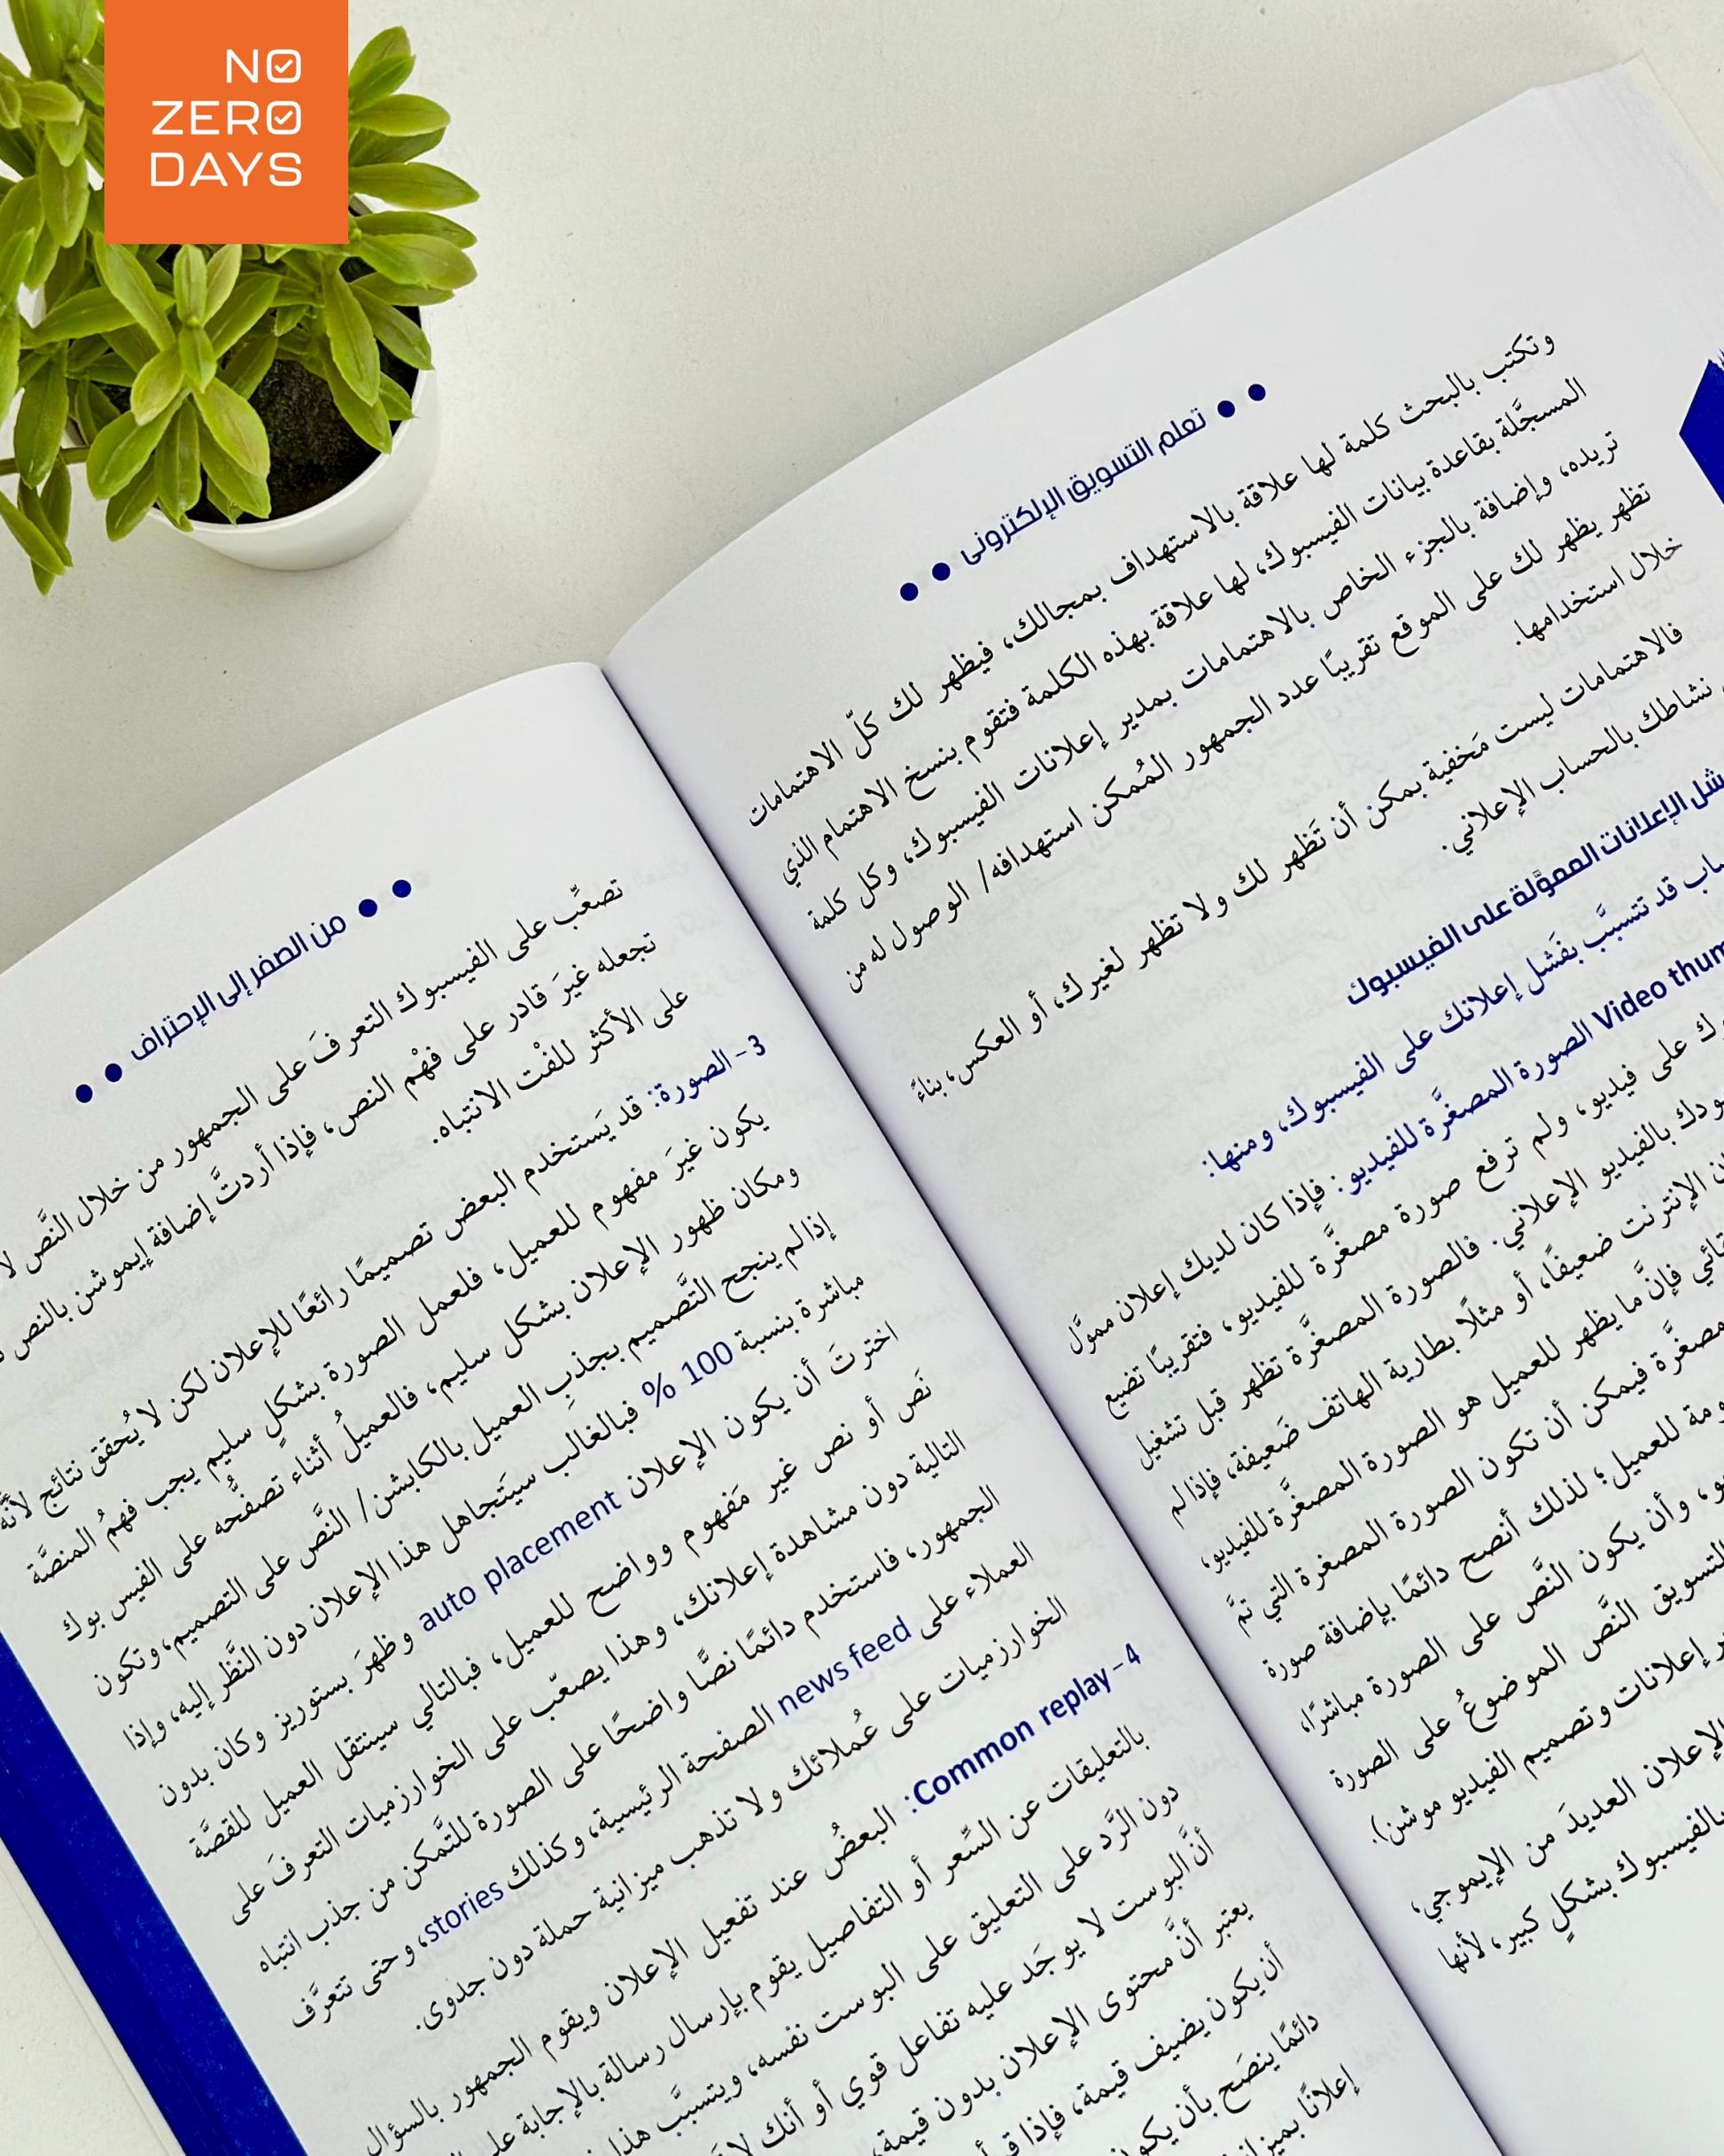 NO
ZERO
DAYS
تعلم التسويق الإلكترونى
وتكتب بالبحث كلمة لها علاقة بالاستهداف بمجالك، فيظهر لك كلّ الاهتمامات
المسجَّلة بقاعدة بيانات الفيسبوك، لها علاقة بهذه الكلمة فتقوم بنسخ الاهتمام الذي
تريده، وإضافة بالجزء الخاص بالاهتمامات بمدير إعلانات الفيسبوك، وكل كلمة
تظهر يظهر لك على الموقع تقريبًا عدد الجمهور المُمكن استهدافه/ الوصول له من
خلال استخدامها.
فالاهتمامات ليست مَخفية بمكن أن تَظهر لك ولا تظهر لغيرك، أو العكس، بناءً
نشاطك بالحساب الإعلاني.
الإعلانات المموَّلة على الفيسبوك
قد تتسبَّب بفَشل إعلانك على الفيسبوك، ومنها:
Video الصورة المصغَّرة للفيديو: فإذا كان لديك إعلان مموَّل
على فيديو، ولم ترفع صورة مصغَّرة للفيديو، فتقريبًا تضيع
بالفيديو الإعلاني. فالصورة المصغَّرة تظهر قبل تشغيل
الإنترنت ضعيفًا، أو مثلًا بطارية الهاتف ضَعيفة، فإذا لم
فإنَّ ما يظهر للعميل هو الصورة المصغَّرة للفيديو،
مصغَّرة فيمكن أن تكون الصورة المصغرة التي تمَّ
للعميل؛ لذلك أنصح دائمًا بإضافة صورة
وأن يكون النَّص على الصورة مباشرًا،
التسويق النَّص الموضوعُ على الصورة
إعلانات وتصميم الفيديو موشن).
الإعلان العديدَ من الإيموجي،
بالفيسبوك بشكلٍ كبير، لأنها
من الصفر إلى الإحتراف
تصعِّب على الفيسبوك التعرفَ على الجمهور من خلال النَّص
تجعله غيرَ قادر على فهْم النص، فإذا أردتَّ إضافة إيموشن بالنص
على الأكثر للفْت الانتباه.
3 – الصورة: قد يَستخدم البعض تصميمًا رائعًا للإعلان لكن لا يُحقق نتائج لأنَّه
يكون غيرَ مفهوم للعميل، فلعمل الصورة بشكلٍ سليم يجب فهمُ المنصَّة
ومكان ظهور الإعلان بشكل سليم، فالعميلُ أثناء تصفحُّه على الفيس بوك
إذا لم ينجح التَّصميم بجذبِ العميل بالكابشن/ النَّص على التصميم، وتكون
مباشرة بنسبة 100 % فبالغالب سيَتجاهل هذا الإعلان دون النَّظر إليه، وإذا
اخترتَ أن يكون الإعلان auto placement وظهرَ بستوريز وكان بدون
نَص أو نص غير مَفهوم وواضح للعميل، فبالتالي سينتقل العميل للقصَّة
التالية دون مشاهدة إعلانك، وهذا يصعّب على الخوارزميات التعرفَ على
الجمهور، فاستخدم دائمًا نصًّا واضحًا على الصورة للتَّمكن من جذب انتباه
العملاء على news feed الصفحة الرئيسية، وكذلك stories، وحتى تتعرَّف
الخوارزميات على عُملائك ولا تذهب ميزانية حملة دون جدوى.
4 – Common replay: البعضُ عند تفعيل الإعلان ويقوم الجمهور بالسؤال
بالتعليقات عن السِّعر أو التفاصيل يقوم بإرسال رسالة بالإجابة
دون الرَّد على التعليق على البوست نفسه، ويتسبَّب هذا
أنَّ البوست لا يوجَد عليه تفاعل قوي أو أنك
يعتبر أنَّ محتوى الإعلان بدون قيمة،
أن يكون يضيف قيمة، فإذا
دائمًا ينصَح بأن يكون
إعلانًا